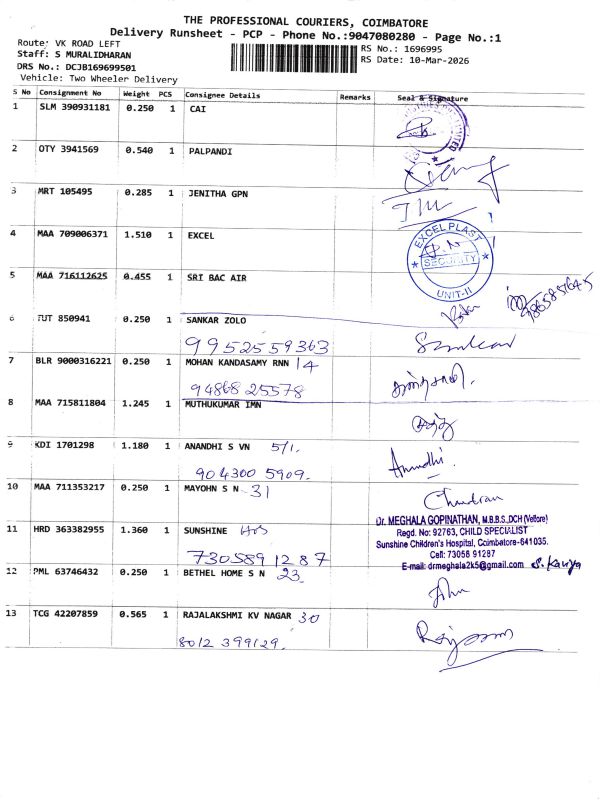 THE PROFESSIONAL COURIERS, COIMBATORE
Delivery Runsheet - PCP - Phone No.:9047080280 - Page No.:1
Route: VK ROAD LEFT
Staff: S MURALIDHARAN
DRS No.: DCJB169699501
Vehicle: Two Wheeler Delivery
RS No.: 1696995
RS Date: 10-Mar-2026
S No Consignment No Weight PCS Consignee Details Remarks Seal & Signature
1 SLM 390931181 0.250 1 CAI
2 OTY 3941569 0.540 1 PALPANDI
3 MRT 105495 0.285 1 JENITHA GPN
4 MAA 709006371 1.510 1 EXCEL
EXCEL PLAST
SECURITY
UNIT-II
5 MAA 716112625 0.455 1 SRI BAC AIR
6 TUT 850941 0.250 1 SANKAR ZOLO
9952559363
7 BLR 9000316221 0.250 1 MOHAN KANDASAMY RNN 14
94868 25578
8 MAA 715811804 1.245 1 MUTHUKUMAR IMN
9 KDI 1701298 1.180 1 ANANDHI S VN 5/1.
904300 5909. Anandhi.
10 MAA 711353217 0.250 1 MAYOHN S N - 31
Chandran
11 HRD 363382955 1.360 1 SUNSHINE Hos
7305891287
Dr. MEGHALA GOPINATHAN, M.B.B.S.,DCH (Vellore)
Regd. No: 92763, CHILD SPECIALIST
Sunshine Children's Hospital, Coimbatore-641035.
Cell: 73058 91287
E-mail: drmeghala2k5@gmail.com S. Kaviya
12 PML 63746432 0.250 1 BETHEL HOME S N 23.
John
13 TCG 42207859 0.565 1 RAJALAKSHMI KV NAGAR 30
8012 399129.